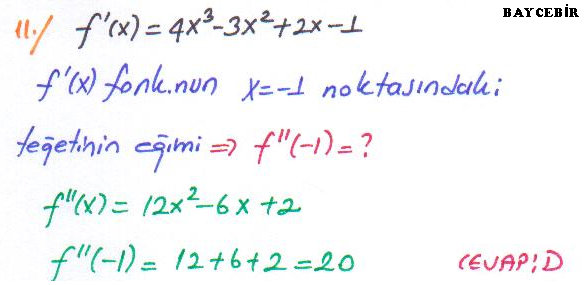 BAYCEBİR
11./ f'(x) = 4x³-3x²+2x-1
f'(x) fonk.nun x=-1 noktasındaki
teğetinin eğimi ⇒ f''(-1) = ?
f''(x) = 12x²-6x+2
f''(-1) = 12+6+2 = 20 CEVAP: D